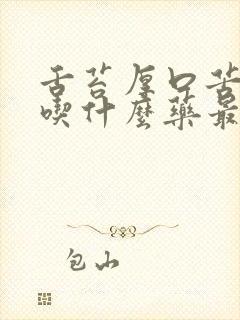 舌苔厚口苦
喫什麼藥最
包山